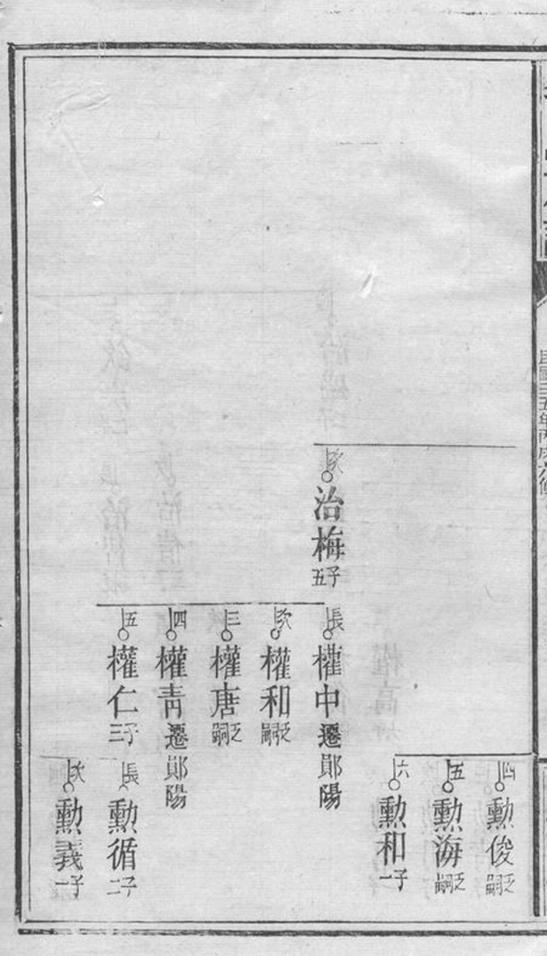 次 治梅 子五
長 權中 遷鄖陽
次 權和 乏嗣
三 權唐 乏嗣
四 權青 遷鄖陽
五 權仁 子三
四 勳俊 乏嗣
五 勳海 乏嗣
六 勳和 子一
長 勳循 子二
次 勳義 子一